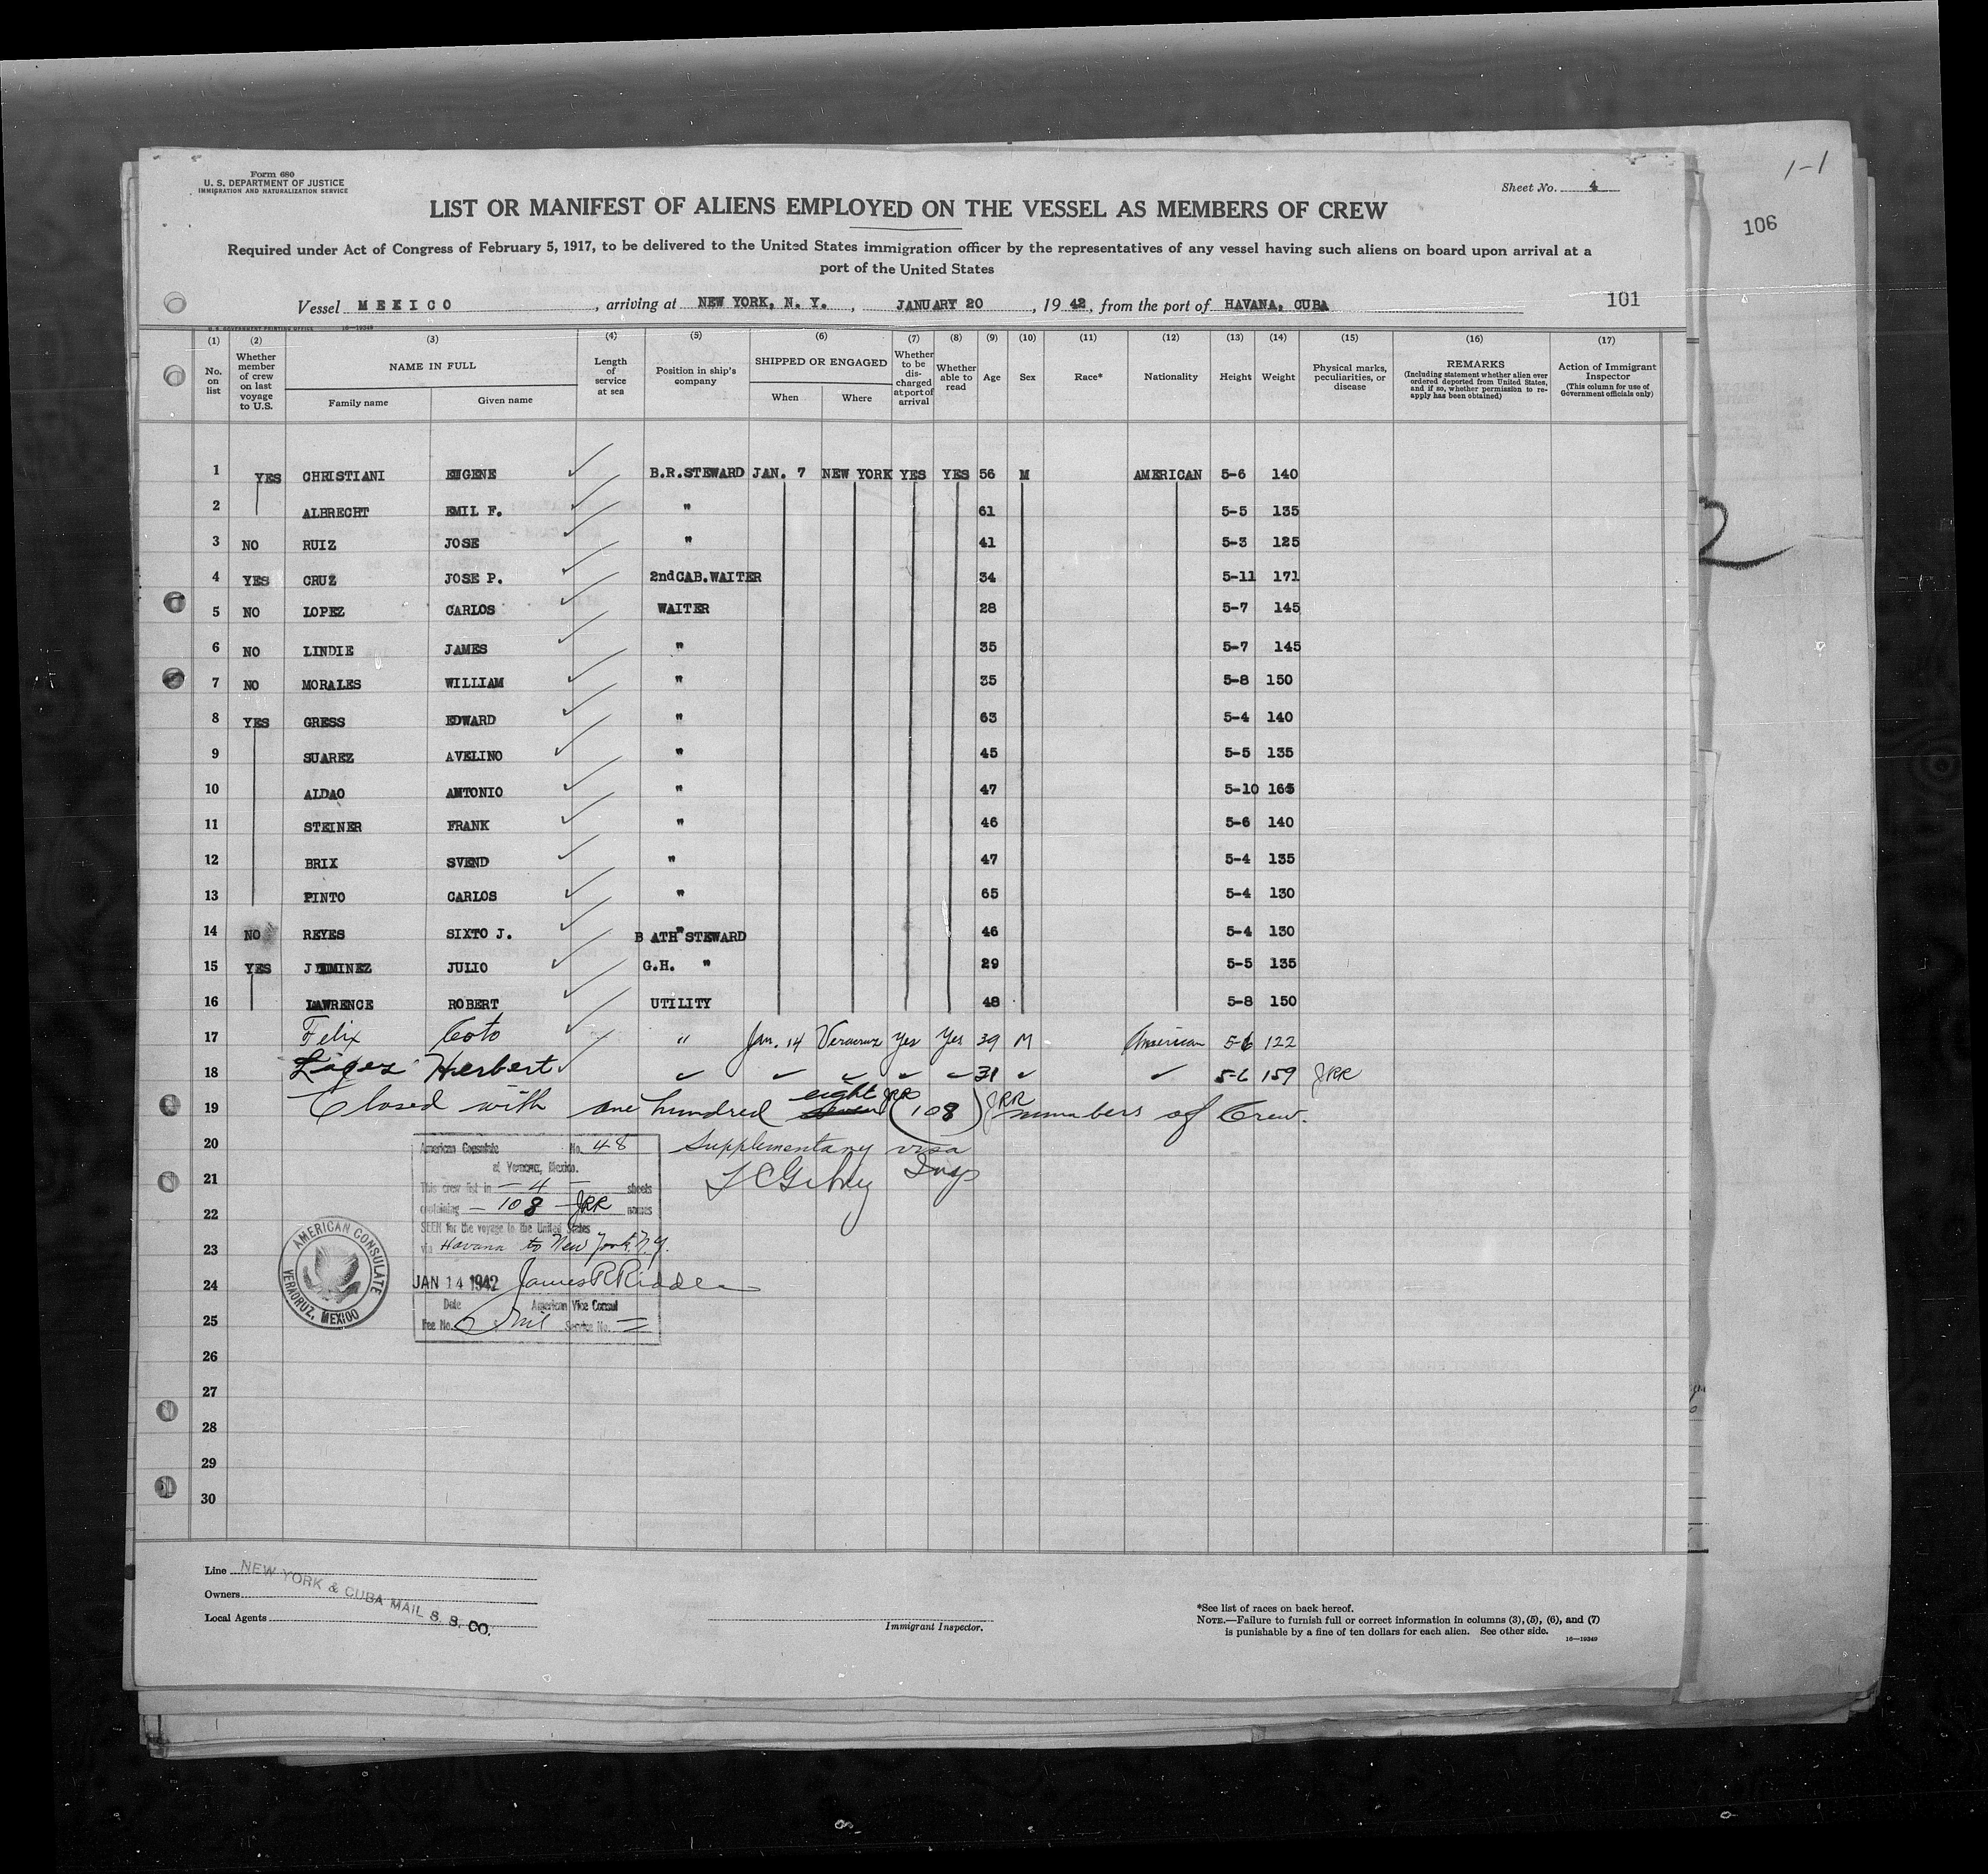 1-1
106
Form 680
U. S. DEPARTMENT OF JUSTICE
IMMIGRATION AND NATURALIZATION SERVICE
Sheet No. 4
LIST OR MANIFEST OF ALIENS EMPLOYED ON THE VESSEL AS MEMBERS OF CREW
Required under Act of Congress of February 5, 1917, to be delivered to the United States immigration officer by the representatives of any vessel having such aliens on board upon arrival at a
port of the United States
Vessel MEXICO, arriving at NEW YORK, N. Y., JANUARY 20, 1942, from the port of HAVANA, CUBA
101
U. S. GOVERNMENT PRINTING OFFICE 16—19349
(1) (2) (3) (4) (5) (6) (7) (8) (9) (10) (11) (12) (13) (14) (15) (16) (17)
No. on list
Whether member of crew on last voyage to U.S.
NAME IN FULL
Family name
Given name
Length of service at sea
Position in ship's company
SHIPPED OR ENGAGED
When
Where
Whether to be discharged at port of arrival
Whether able to read
Age
Sex
Race*
Nationality
Height
Weight
Physical marks, peculiarities, or disease
REMARKS
(Including statement whether alien ever ordered deported from United States, and if so, whether permission to reapply has been obtained)
Action of Immigrant Inspector
(This column for use of Government officials only)
1 YES CHRISTIANI EUGENE B.R.STEWARD JAN. 7 NEW YORK YES YES 56 M AMERICAN 5-6 140
2 ALBRECHT EMIL F. " 61 5-5 135
3 NO RUIZ JOSE " 41 5-3 125
4 YES CRUZ JOSE P. 2nd CAB.WAITER 34 5-11 171
5 NO LOPEZ CARLOS WAITER 28 5-7 145
6 NO LINDIE JAMES " 35 5-7 145
7 NO MORALES WILLIAM " 35 5-8 150
8 YES GRESS EDWARD " 63 5-4 140
9 SUAREZ AVELINO " 45 5-5 135
10 ALDAO ANTONIO " 47 5-10 165
11 STEINER FRANK " 46 5-6 140
12 BRIX SVEND " 47 5-4 135
13 PINTO CARLOS " 65 5-4 130
14 NO REYES SIXTO J. BATH STEWARD 46 5-4 130
15 YES JIMINEZ JULIO G.H. " 29 5-5 135
16 LAWRENCE ROBERT UTILITY 48 5-8 150
17 Felix Coto " Jan. 14 Veracruz Yes Yes 39 M American 5-6 122
18 Herbert 31 5-6 159 JRR
19 Closed with one hundred seven eight JRR (108) JRR members of Crew.
20 Supplementary visa
21
22
23
24
25
26
27
28
29
30
American Consulate No. 48
at Veracruz, Mexico.
This crew list in — 4 — sheets
containing — 108 JRR names
SEEN for the voyage to the United States
via Havana to New York, N.Y.
JAN 14 1942 James R Riddle
Date American Vice Consul
Fee No. nil Service No. —
AMERICAN CONSULATE
VERACRUZ, MEXICO
2
Line
Owners
Local Agents
NEW YORK & CUBA MAIL S. S. CO.
Immigrant Inspector.
*See list of races on back hereof.
NOTE.—Failure to furnish full or correct information in columns (3), (5), (6), and (7)
is punishable by a fine of ten dollars for each alien. See other side.
16—19349